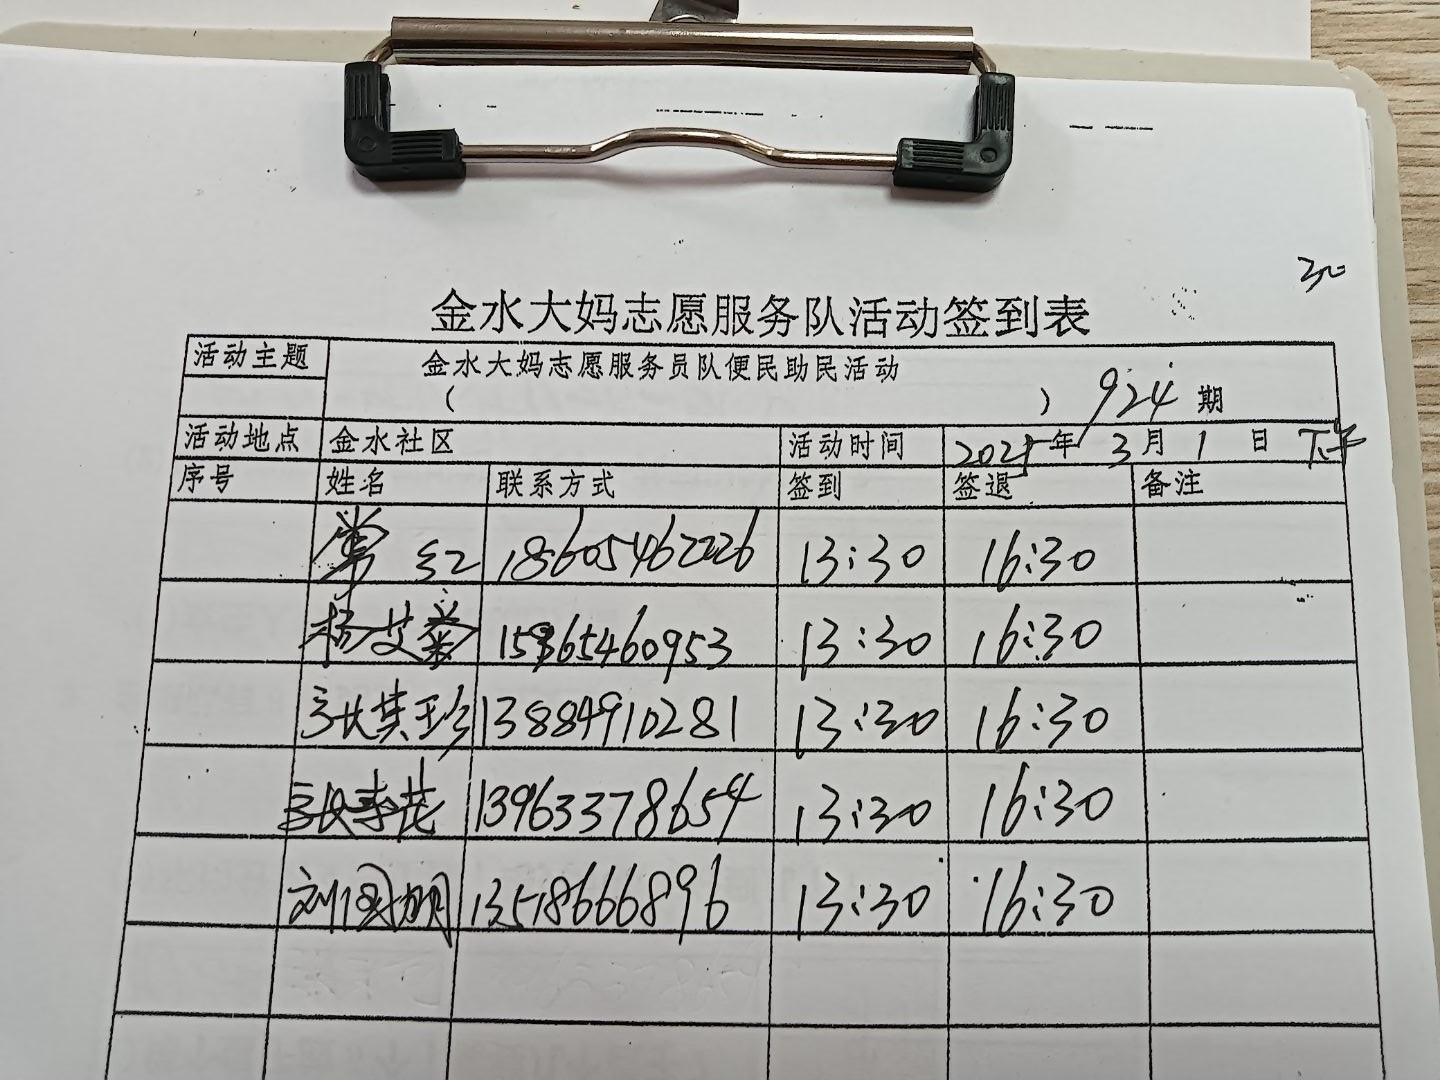 金水大妈志愿服务队活动签到表
活动主题 金水大妈志愿服务员队便民助民活动
( ) 924 期
活动地点 金水社区 活动时间 2025年 3月 1 日 下午
序号 姓名 联系方式 签到 签退 备注
常红 18605462226 13:30 16:30
杨艾菊 15965460953 13:30 16:30
张英珍 13884910281 13:30 16:30
张春花 13963378654 13:30 16:30
刘国明 13518666896 13:30 16:30